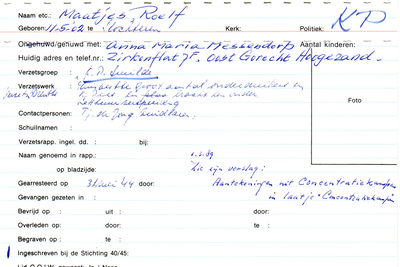 Naam etc.: Maatjes Roelf
KP
Geboren: 11-5-02 te : Lochteren Kerk: Politiek:
Ongehuwd/gehuwd met: Anna Maria Messendorp Aantal kinderen:
Huidig adres en telef.nr.: Zirkenflat 7F. Oost Gerecht Hoogezand.
Verzetsgroep : K.P. Smilde
Verzetswerk : groot aantal onderduikers en
K.P. en
Foto
Contactpersonen: Tj. de Jong Zuidlaren.
Schuilnamen :
Verzetsrapp. ingel. dd. : bij:
Naam genoemd in rapp.: 1.2.89
op bladzijde: Zie zijn verslag:
Aantekeningen uit Concentratiekampen
Gearresteerd op : 31 Mei '44 door: in laatje "Concentratiekamp
Gevangen gezeten in :
Bevrijd op : uit : door:
Overleden op : door: te :
Begraven op : te :
Ingeschreven bij de Stichting 40/45: